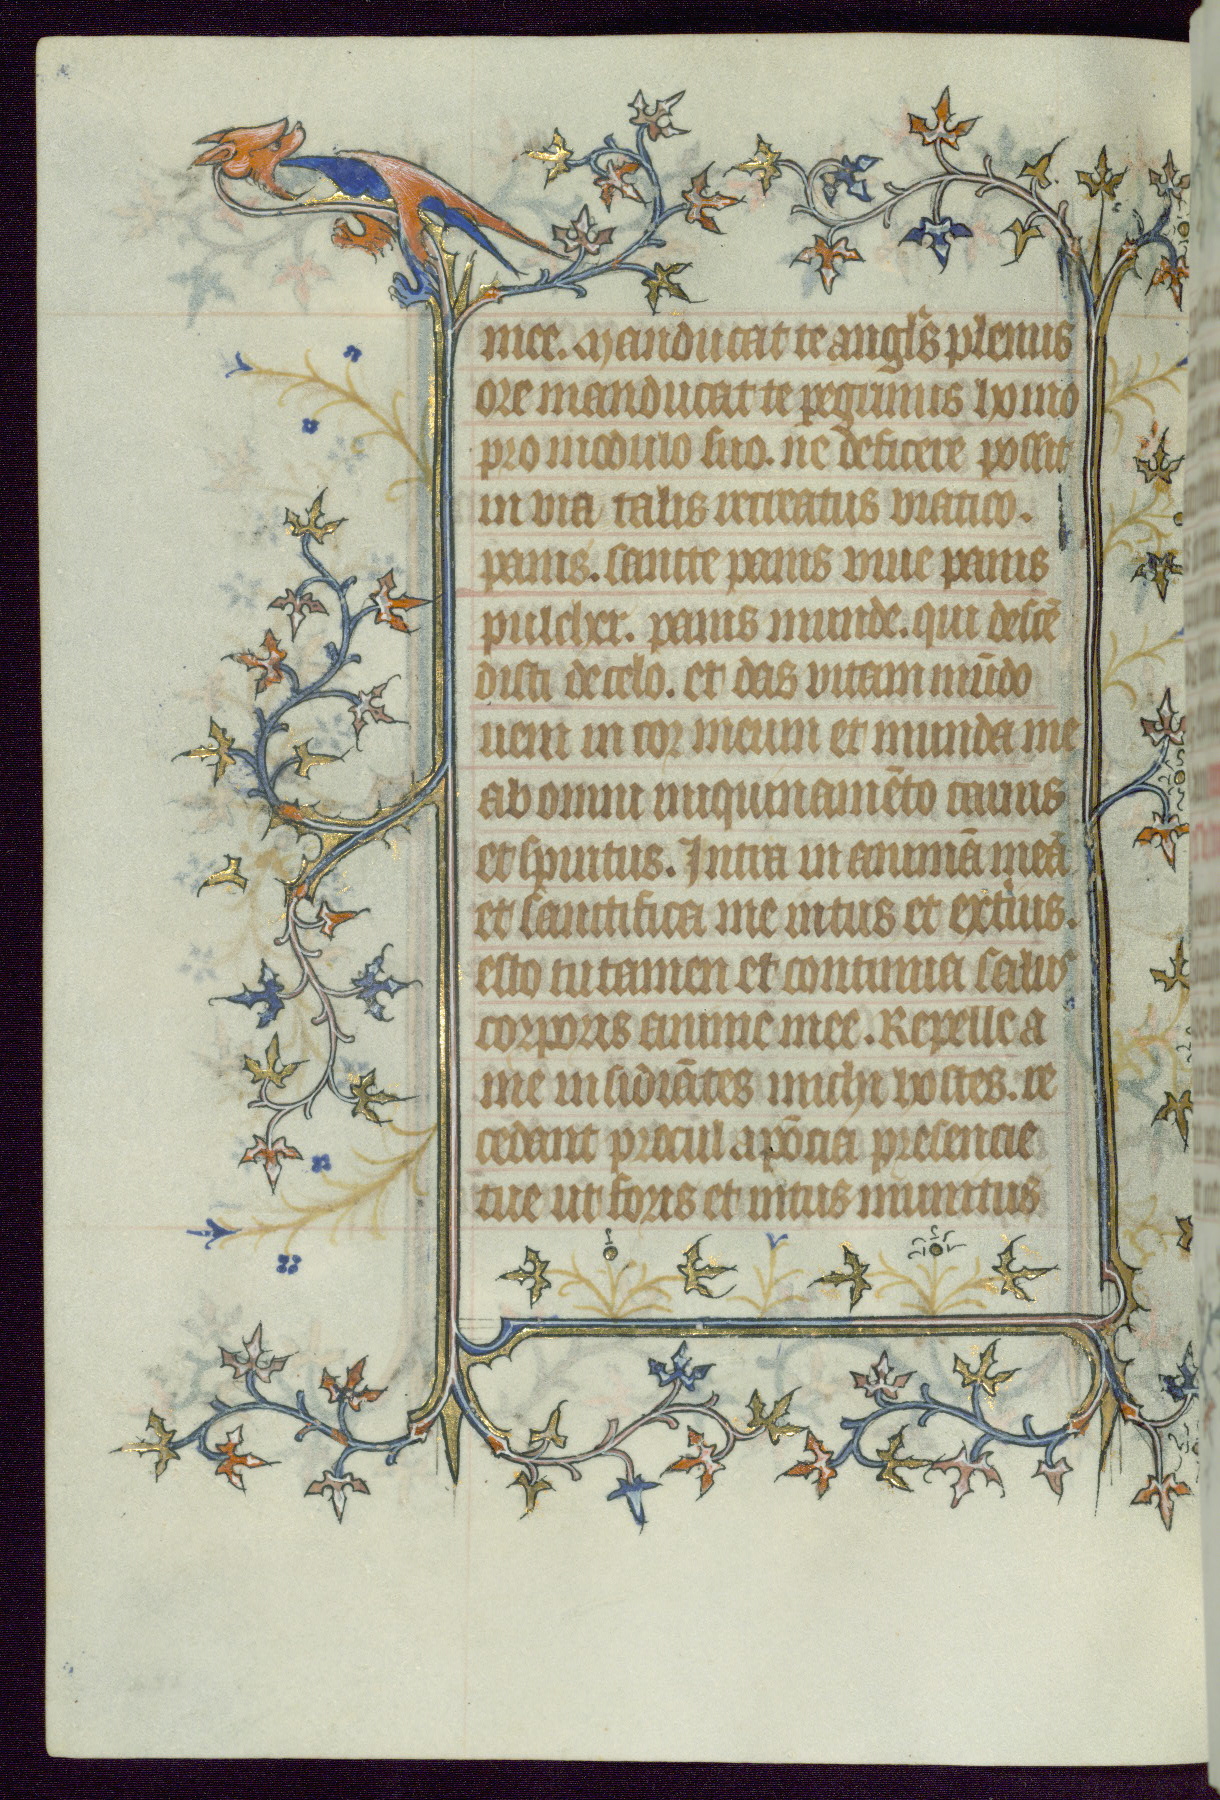 mee. Manducat te angl's plenus
ore manducat te pegrinus homo
pro modulo suo. ne deficere possit
in via talis recreatus viatico.
panis. sancte panis viue panis
pulcher. panis munde. qui descē
disti de celo. et das vitam mūdo
ueni in cor meum et munda me
ab omni inquinamēto carnis
et spiritus. Intra in animā meā
et sanctifica me intus et exteius.
esto tu tamen et continua salus
corporis anime mee. Repelle a
me insidiātes michi hostes. re
cedant procul a pōcia presencie
tue ut foris et intus munitus